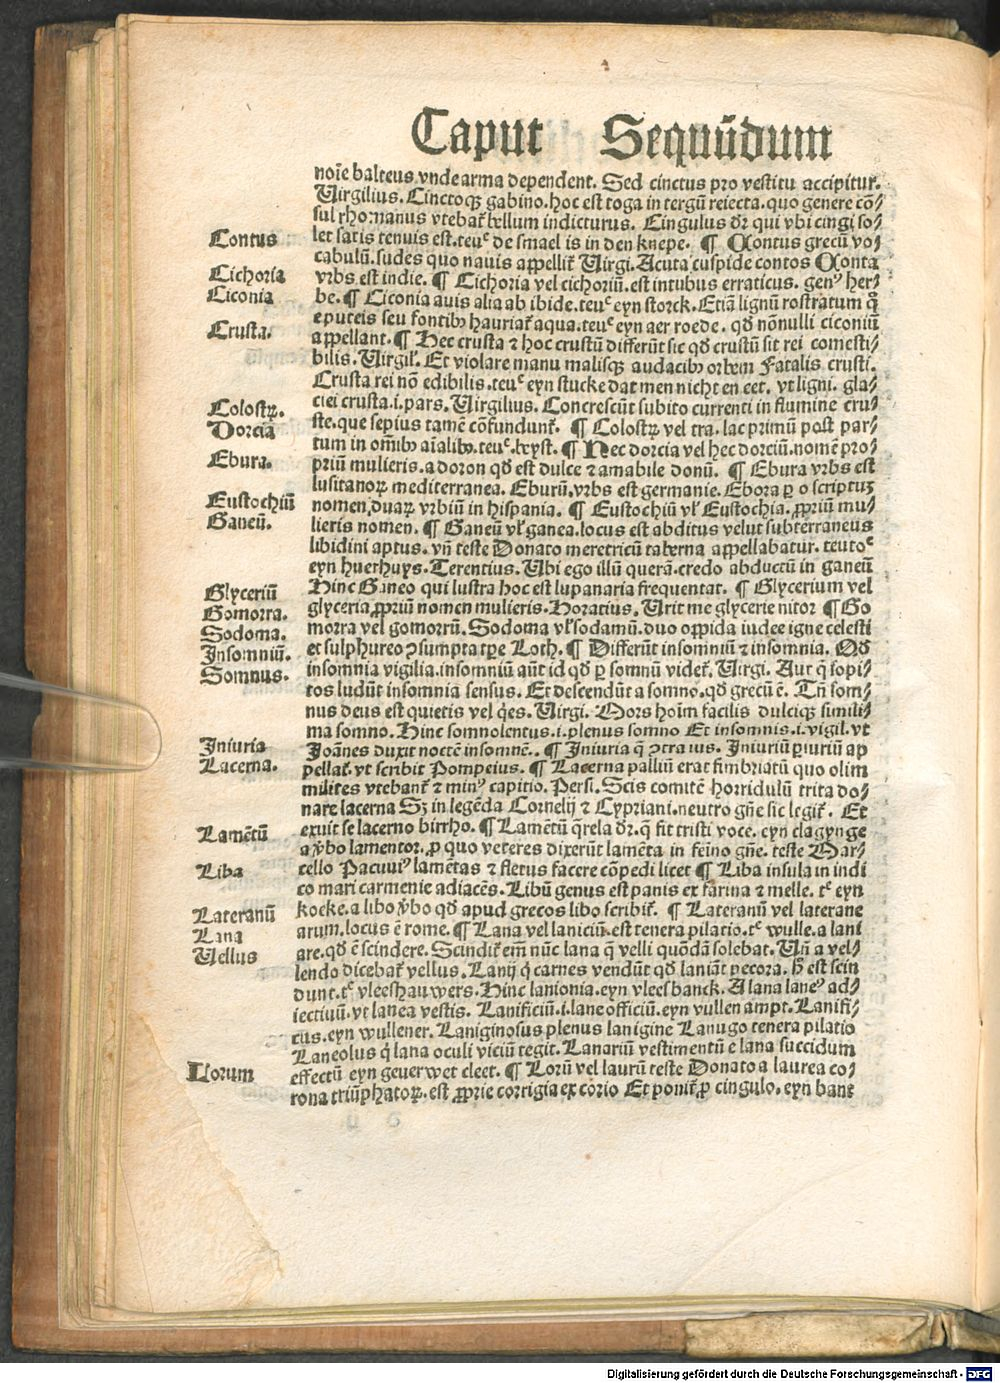 Caput Seqnũdum
noīe balteus vnde arma dependent. Sed cinctus pro vestitu accipitur.
Uirgilius. Cinctoqʒ gabino. hoc est toga in tergũ reiecta. quo genere cõ⸗
sul rhomanus vtebať bellum indicturus. Cingulus dr̃ qui vbi cingi so⸗
Contus
let satis tenuis est. teuᶜ de smael is in den knepe. ¶ Contus grecũ vo⸗
cabulũ. sudes quo nauis appelliť Uirgi. Acuta cuspide contos Conta
Cichoria
vrbs est indie. ¶ Cichoria vel cichoriũ. est intubus erraticus. genꝰ her⸗
Ciconia
be. ¶ Ciconia auis alia ab ibide. teuᶜ eyn storck. Etiã lignũ rostratum q̃
e puteis seu fontibꝰ hauriať aqua. teuᶜ eyn aer roede. qđ nõnulli ciconiũ
Crusta.
appellant. ¶ Hec crusta ⁊ hoc crustũ differũt sic qđ crustũ sit rei comesti⸗
bilis. Uirgiľ. Et violare manu malisqʒ audacibꝰ orbem Fatalis crusti.
Crusta rei nõ edibilis. teuᶜ eyn stucke dat men nicht en eet. vt ligni. gla⸗
ciei crusta. i. pars. Uirgilius. Concrescũt subito currenti in flumine cru⸗
Colostꝝ.
ste. que sepius tamẽ cõfundunť. ¶ Colostꝝ vel tra. lac primũ post par⸗
Dorciã
tum in om̃ibꝰ aĩalibꝰ. teuᶜ. byst. ¶ Nec dorcia vel hec dorciũ. nomẽ pro⸗
Ebura.
priũ mulieris. a doron qđ est dulce ⁊ amabile donũ. ¶ Ebura vrbs est
lusitanoꝝ mediterranea. Eburũ. vrbs est germanie. Ebora ꝑ o scriptuʒ
Eustochiũ
nomen duaꝝ vrbiũ in hispania. ¶ Eustochiũ vľ Eustochia. ꝓpriũ mu⸗
Ganeũ.
lieris nomen. ¶ Ganeũ vľ ganea. locus est abditus velut subterraneus
libidini aptus. vñ teste Donato meretricũ taberna appellabatur. teutoᶜ
eyn huerhuys. Terentius. Ubi ego illũ querã. credo abductũ in ganeũ
Hinc Ganeo qui lustra hoc est lupanaria frequentat. ¶ Glycerium vel
Glyceriũ
glyceria ꝓpriũ nomen mulieris. Horatius. Urit me glycerie nitor ¶ Go
Gomorra.
morra vel gomorrũ. Sodoma vľ sodamũ. duo oppida iudee igne celesti
Sodoma.
et sulphureo ↄsumpta tꝑe Loth. ¶ Differũt insomniũ ⁊ insomnia. Qđ
Insomniũ.
insomnia vigilia. insomniũ aũt id qđ ꝑ somnũ videť. Uirgi. Aut q̃ sopi⸗
Somnus.
tos ludũt insomnia sensus. Et descendũt a somno. qđ grecũ ẽ. Tñ som⸗
nus deus est quietis vel q̃es. Uirgi. Mors hoĩm facilis dulciqʒ simili⸗
ma somno. Hinc somnolentus. i. plenus somno Et insomnis. i. vigil. vt
Iniuria
Joãnes duxit noctẽ insomnẽ.. ¶ Iniuria q̃ ↄtra ius. Iniuriũ ꝑiuriũ ap
Lacerna.
pellať. vt scribit Pompeius. ¶ Lacerna palliũ erat fimbriatũ quo olim
milites vtebanť ⁊ minꝰ capitio. Persi. Scis comitẽ horridulũ trita do⸗
nare lacerna Sʒ in legẽda Cornelij ⁊ Cypriani. neutro gñe sic legiť. Et
exuit se lacerno birrho. ¶ Lamẽtũ q̃rela dr̃. q̃ fit tristi voce. eyn clagynge
Lamẽtũ
a ṽbo lamentor. ꝓ quo veteres dixerũt lamẽta in feĩno gñe. teste Mar⸗
Liba
cello Pacuuiꝰ lamẽtas ⁊ fletus facere cõpedi licet ¶ Liba insula in indi
co mari carmenie adiacẽs. Libũ genus est panis ex farina ⁊ melle. tᶜ eyn
Lateranũ
koeke. a libo ṽbo qđ apud grecos libo scribiť. ¶ Lateranũ vel laterane
Lana
arum. locus ẽ rome. ¶ Lana vel laniciũ. est tenera pilatio. tᶜ wulle. a lani
Uellus
are. qđ ẽ scindere. Scindiť em̃ nũc lana q̃ velli quõdã solebat. Uñ a vel⸗
lendo dicebať vellus. Lanij q̃ carnes vendũt qđ laniãt pecora. h̃ est scin
dunt. tᶜ vleeshauwers. Hinc lanionia. eyn vleesbanck. A lana laneꝰ ad⸗
iectiuũ. vt lanea vestis. Lanificiũ. i. lane officiũ. eyn vullen ampt. Lanifi⸗
cus. eyn wullener. Laniginosus plenus lanigine Lanugo tenera pilatio
Laneolus q̃ lana oculi viciũ tegit. Lanariũ vestimentũ e lana succidum
Lorum
effectũ eyn geuerwet cleet. ¶ Lorũ vel laurũ teste Donato a laurea co⸗
rona triũphatoꝝ. est ꝓprie corrigia ex corio Et poniť ꝓ cingulo. eyn bant
Digitalisierung gefördert durch die Deutsche Forschungsgemeinschaft - DFG